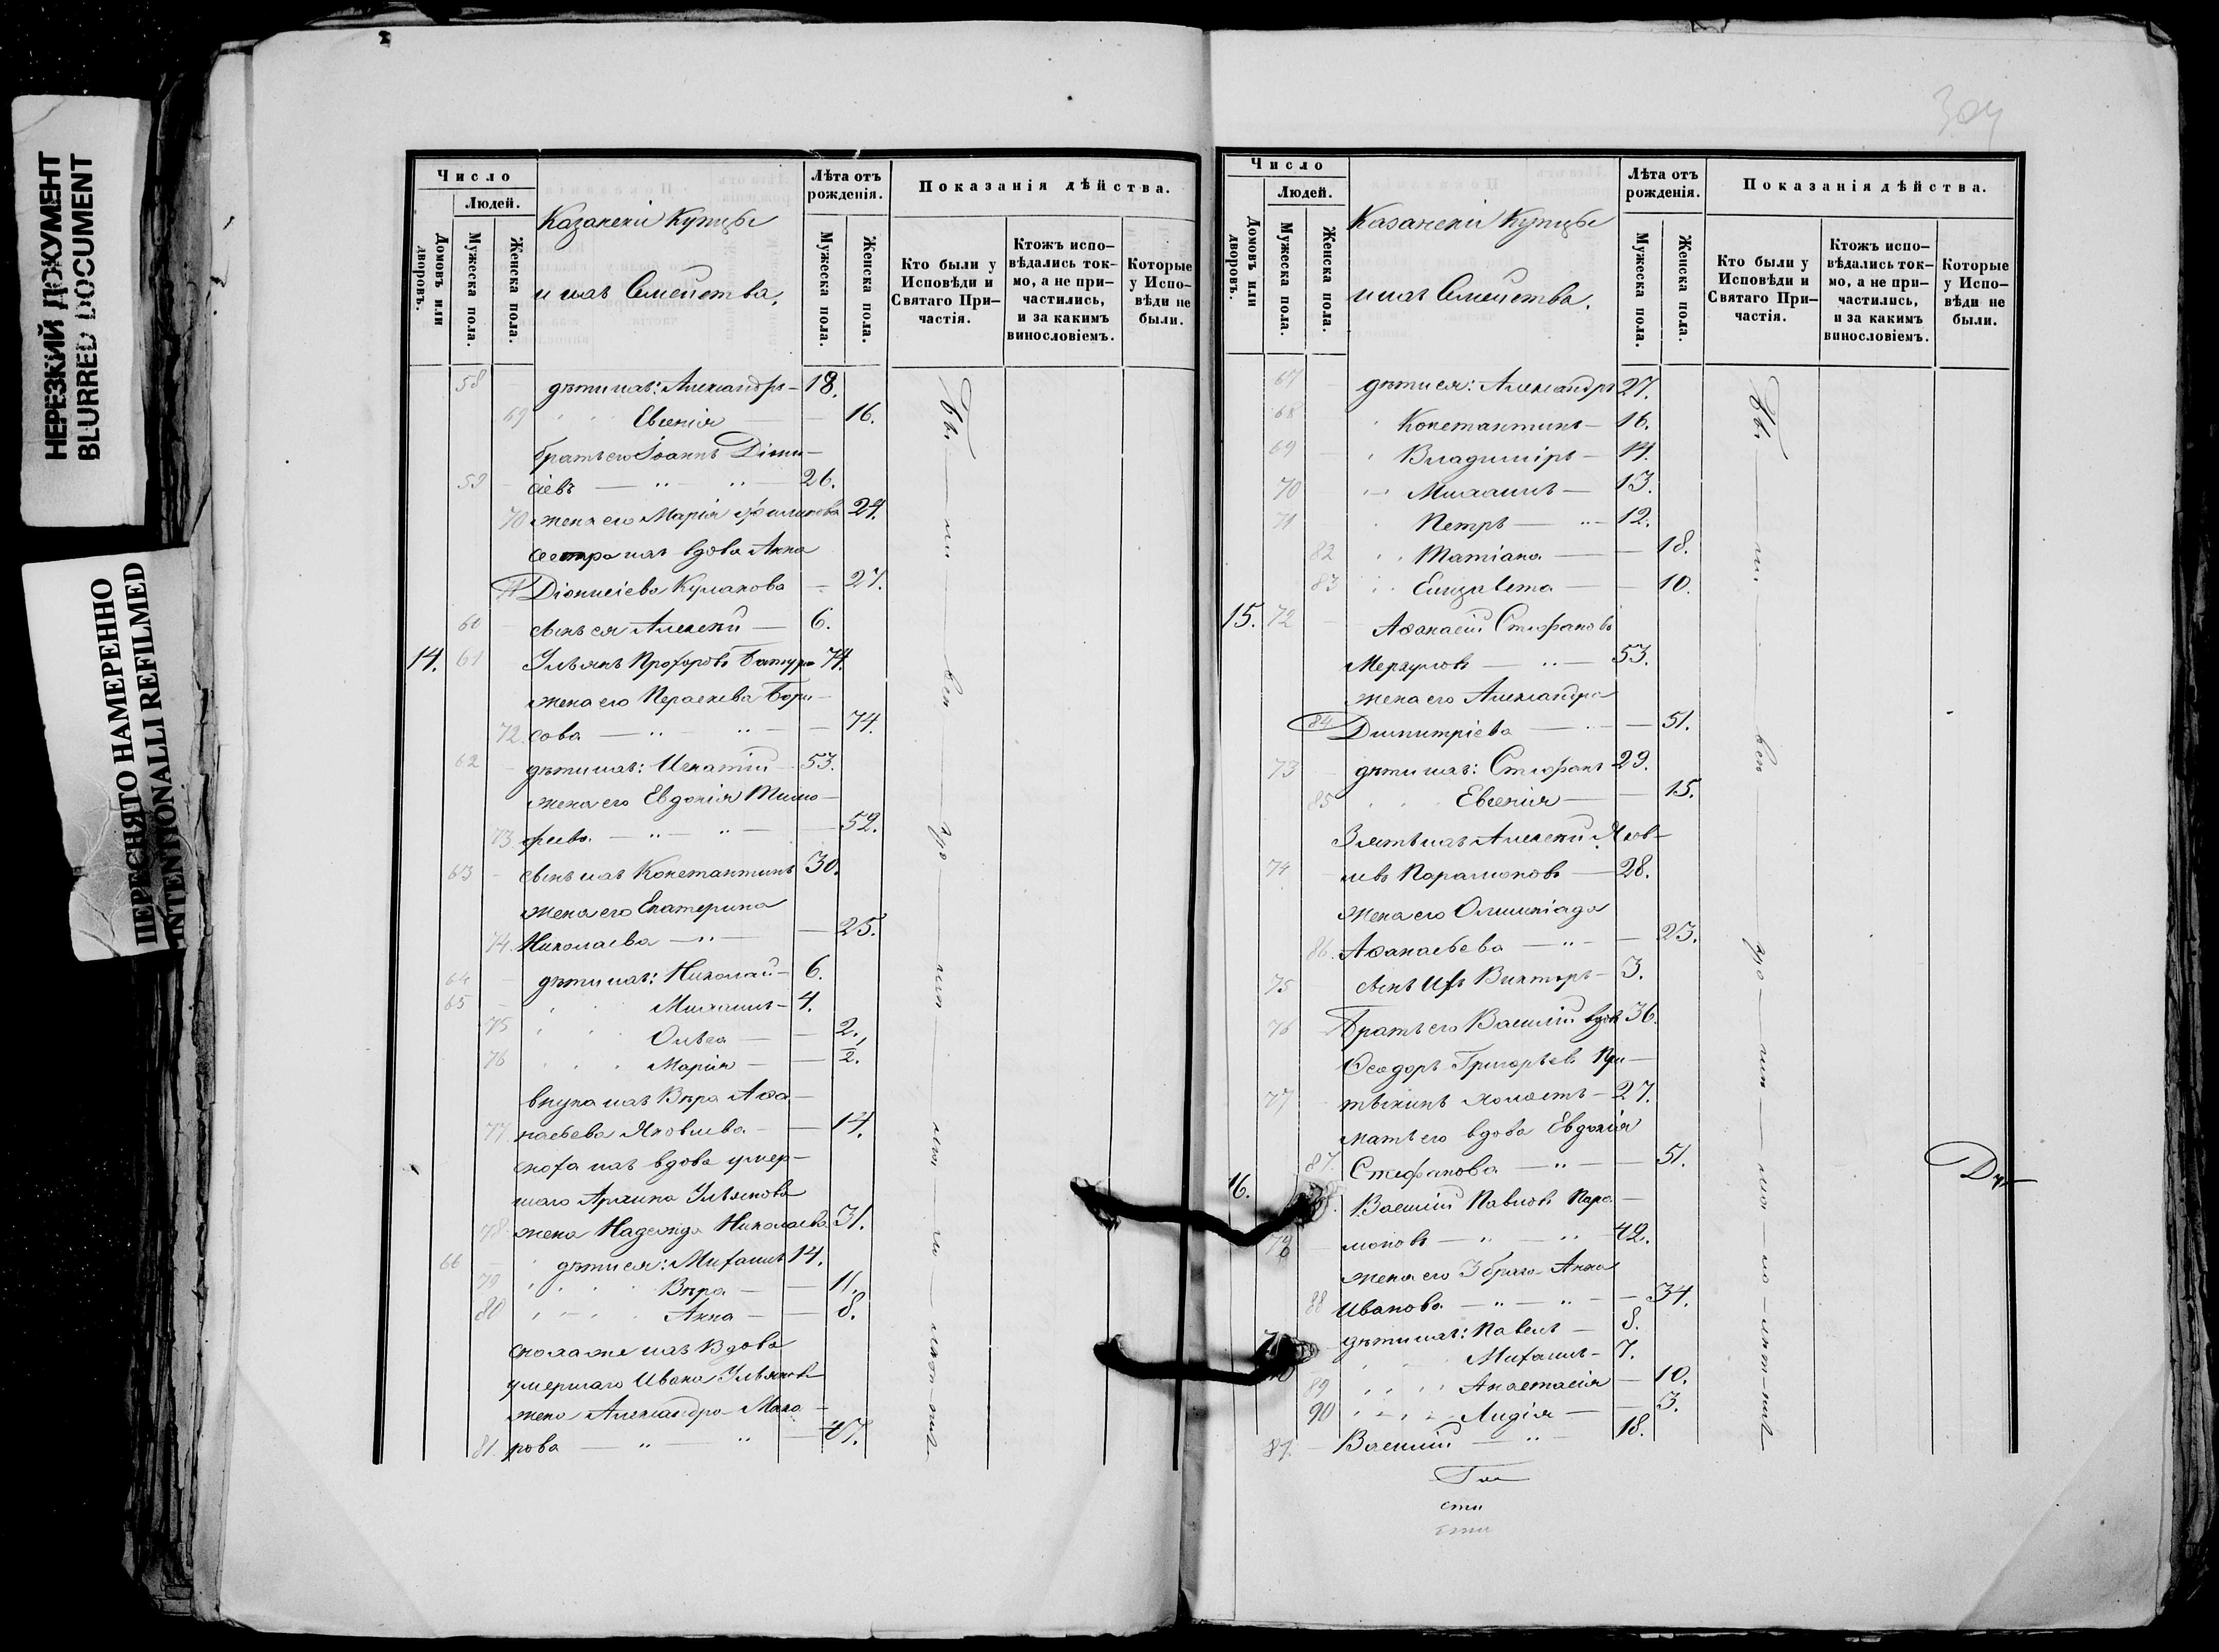 НЕРЕЗКИЙ ДОКУМЕНТ
BLURRED DOCUMENT
ПЕРЕСНЯТО НАМЕРЕННО
INTENTIONALLI REFILMED
Число
Людей.
Домовъ или дворовъ.
Мужеска пола.
Женска пола.
Казанскіи Купцы
и ихъ Семейства.
Лѣта отъ рожденія.
Мужеска пола.
Женска пола.
Показанія дѣйства.
Кто были у Исповѣди и Святаго Причастія.
Ктожъ исповѣдались токмо, а не причастились, и за какимъ винословіемъ.
Которые у Исповѣди не были.
58 дѣти ихъ: Александръ – 18.
69 Евгенія — 16.
братъ его Іоаннъ Діони-
59 сіевъ — 26.
70 жена его Марія Филипова 24.
сестра ихъ вдова Анна
71 Діонисіева Кулакова — 27.
60 сынъ ея Алексѣй — 6.
14. 61 Ульянъ Прохоровъ 74.
жена его Параскева Бори-
72. сова — 74.
62 дѣти ихъ: Игнатій 53.
жена его Евдокія Тимо-
73. феева — 52.
63 сынъ ихъ Константинъ 30.
жена его Екатерина
74. Николаева — 25.
64 дѣти ихъ: Николай – 6.
65 Михаилъ – 4.
75 Ольга — 2.
76 Марія — 1/2.
внука ихъ Вѣра Аѳа-
77 насьева Яковлева — 14.
сноха ихъ вдова умер-
шаго Архипа Ульянова
78 жена Надежда Николаева 31.
66 дѣти ея: Михаилъ 14.
79 Вѣра — 11.
80 Анна — 8.
сноха же ихъ Вдова
умершаго Ивана Ульянова
жена Александра Мака-
81. рова — 47.
304
Число
Людей.
Домовъ или дворовъ.
Мужеска пола.
Женска пола.
Казанскіи Купцы
и ихъ Семейства.
Лѣта отъ рожденія.
Мужеска пола.
Женска пола.
Показанія дѣйства.
Кто были у Исповѣди и Святаго Причастія.
Ктожъ исповѣдались токмо, а не причастились, и за какимъ винословіемъ.
Которые у Исповѣди не были.
67 дѣти ея: Александръ 27.
68 Константинъ – 16.
69 Владиміръ – 14.
70 Михаилъ — 13.
71 Петръ — 12.
82 Татіана — 18.
83 Елизавета — 10.
15. 72 Аѳанасій Стефановъ
Меркуловъ — 53.
жена его Александра
84 Димитріева — 51.
73 дѣти ихъ: Стефанъ 29.
85 Евгенія — 15.
Зять ихъ Алексѣй Яков-
74 левъ Парамоновъ — 28.
жена его Олимпіада
86. Аѳанасьева — 23.
75 сынъ ихъ Викторъ – 3.
76 Братъ его Василій вдов 36.
Ѳеодоръ Григорьевъ
77 холостъ – 27.
мать его вдова Евдокія
87. Стефанова — 51.
16. Василій Павловъ Пара-
78 моновъ — 42.
жена его 3 брака Анна
88 Иванова — 34.
дѣти ихъ: Павелъ — 8.
Михаилъ – 7.
89 Анастасія — 10.
90 Лидія — 3.
81. Василій — 18.
сти